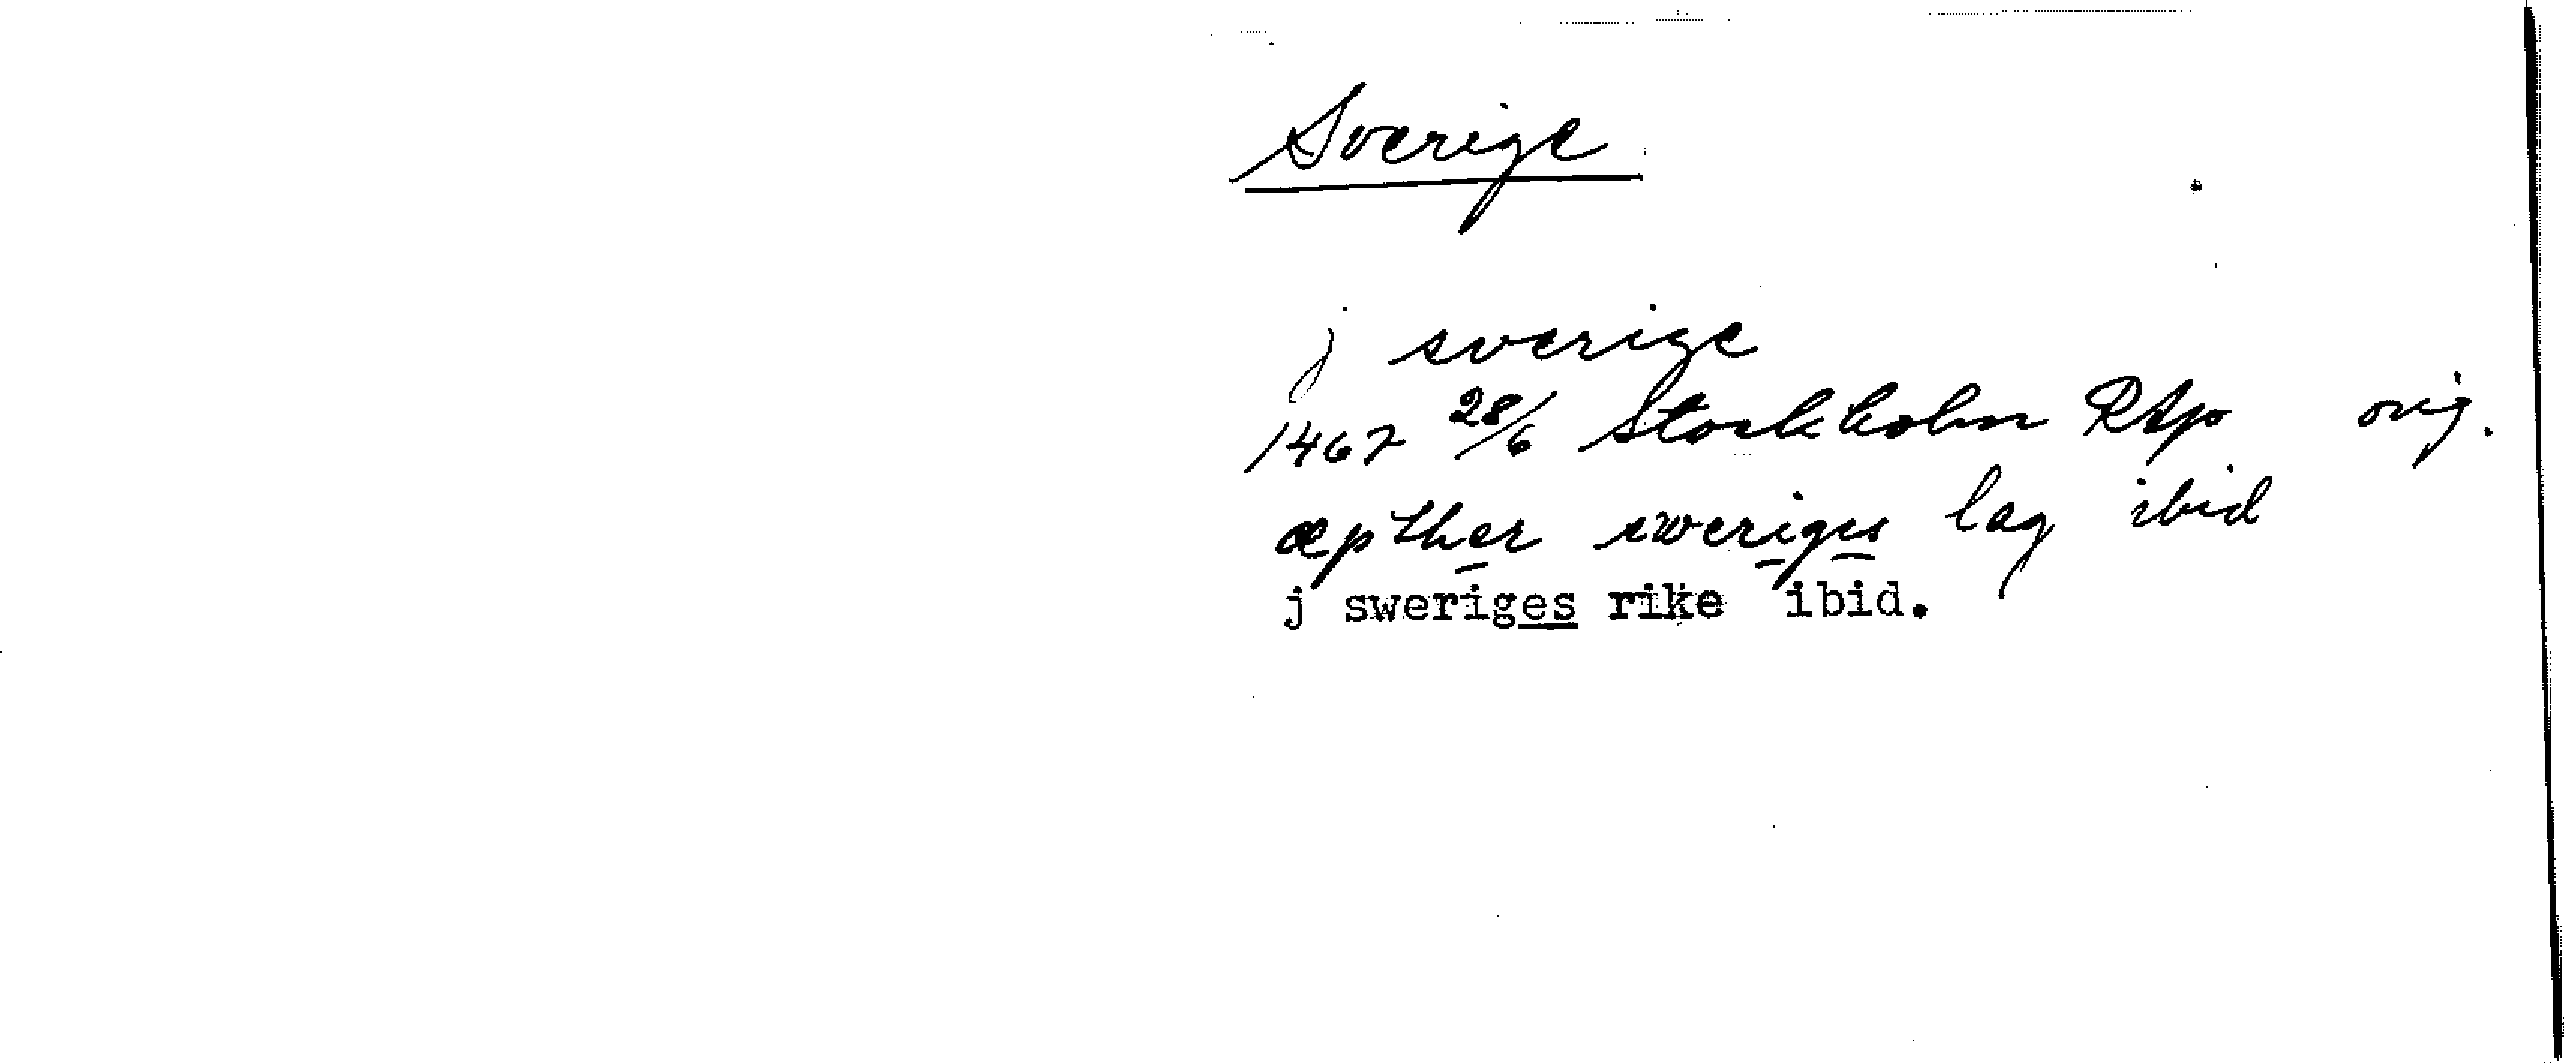 Sverige
j sverige
1467 28/6 Stockholm RAp orig.
æpther sweriges lag ibid
j sweriges rike ibid.